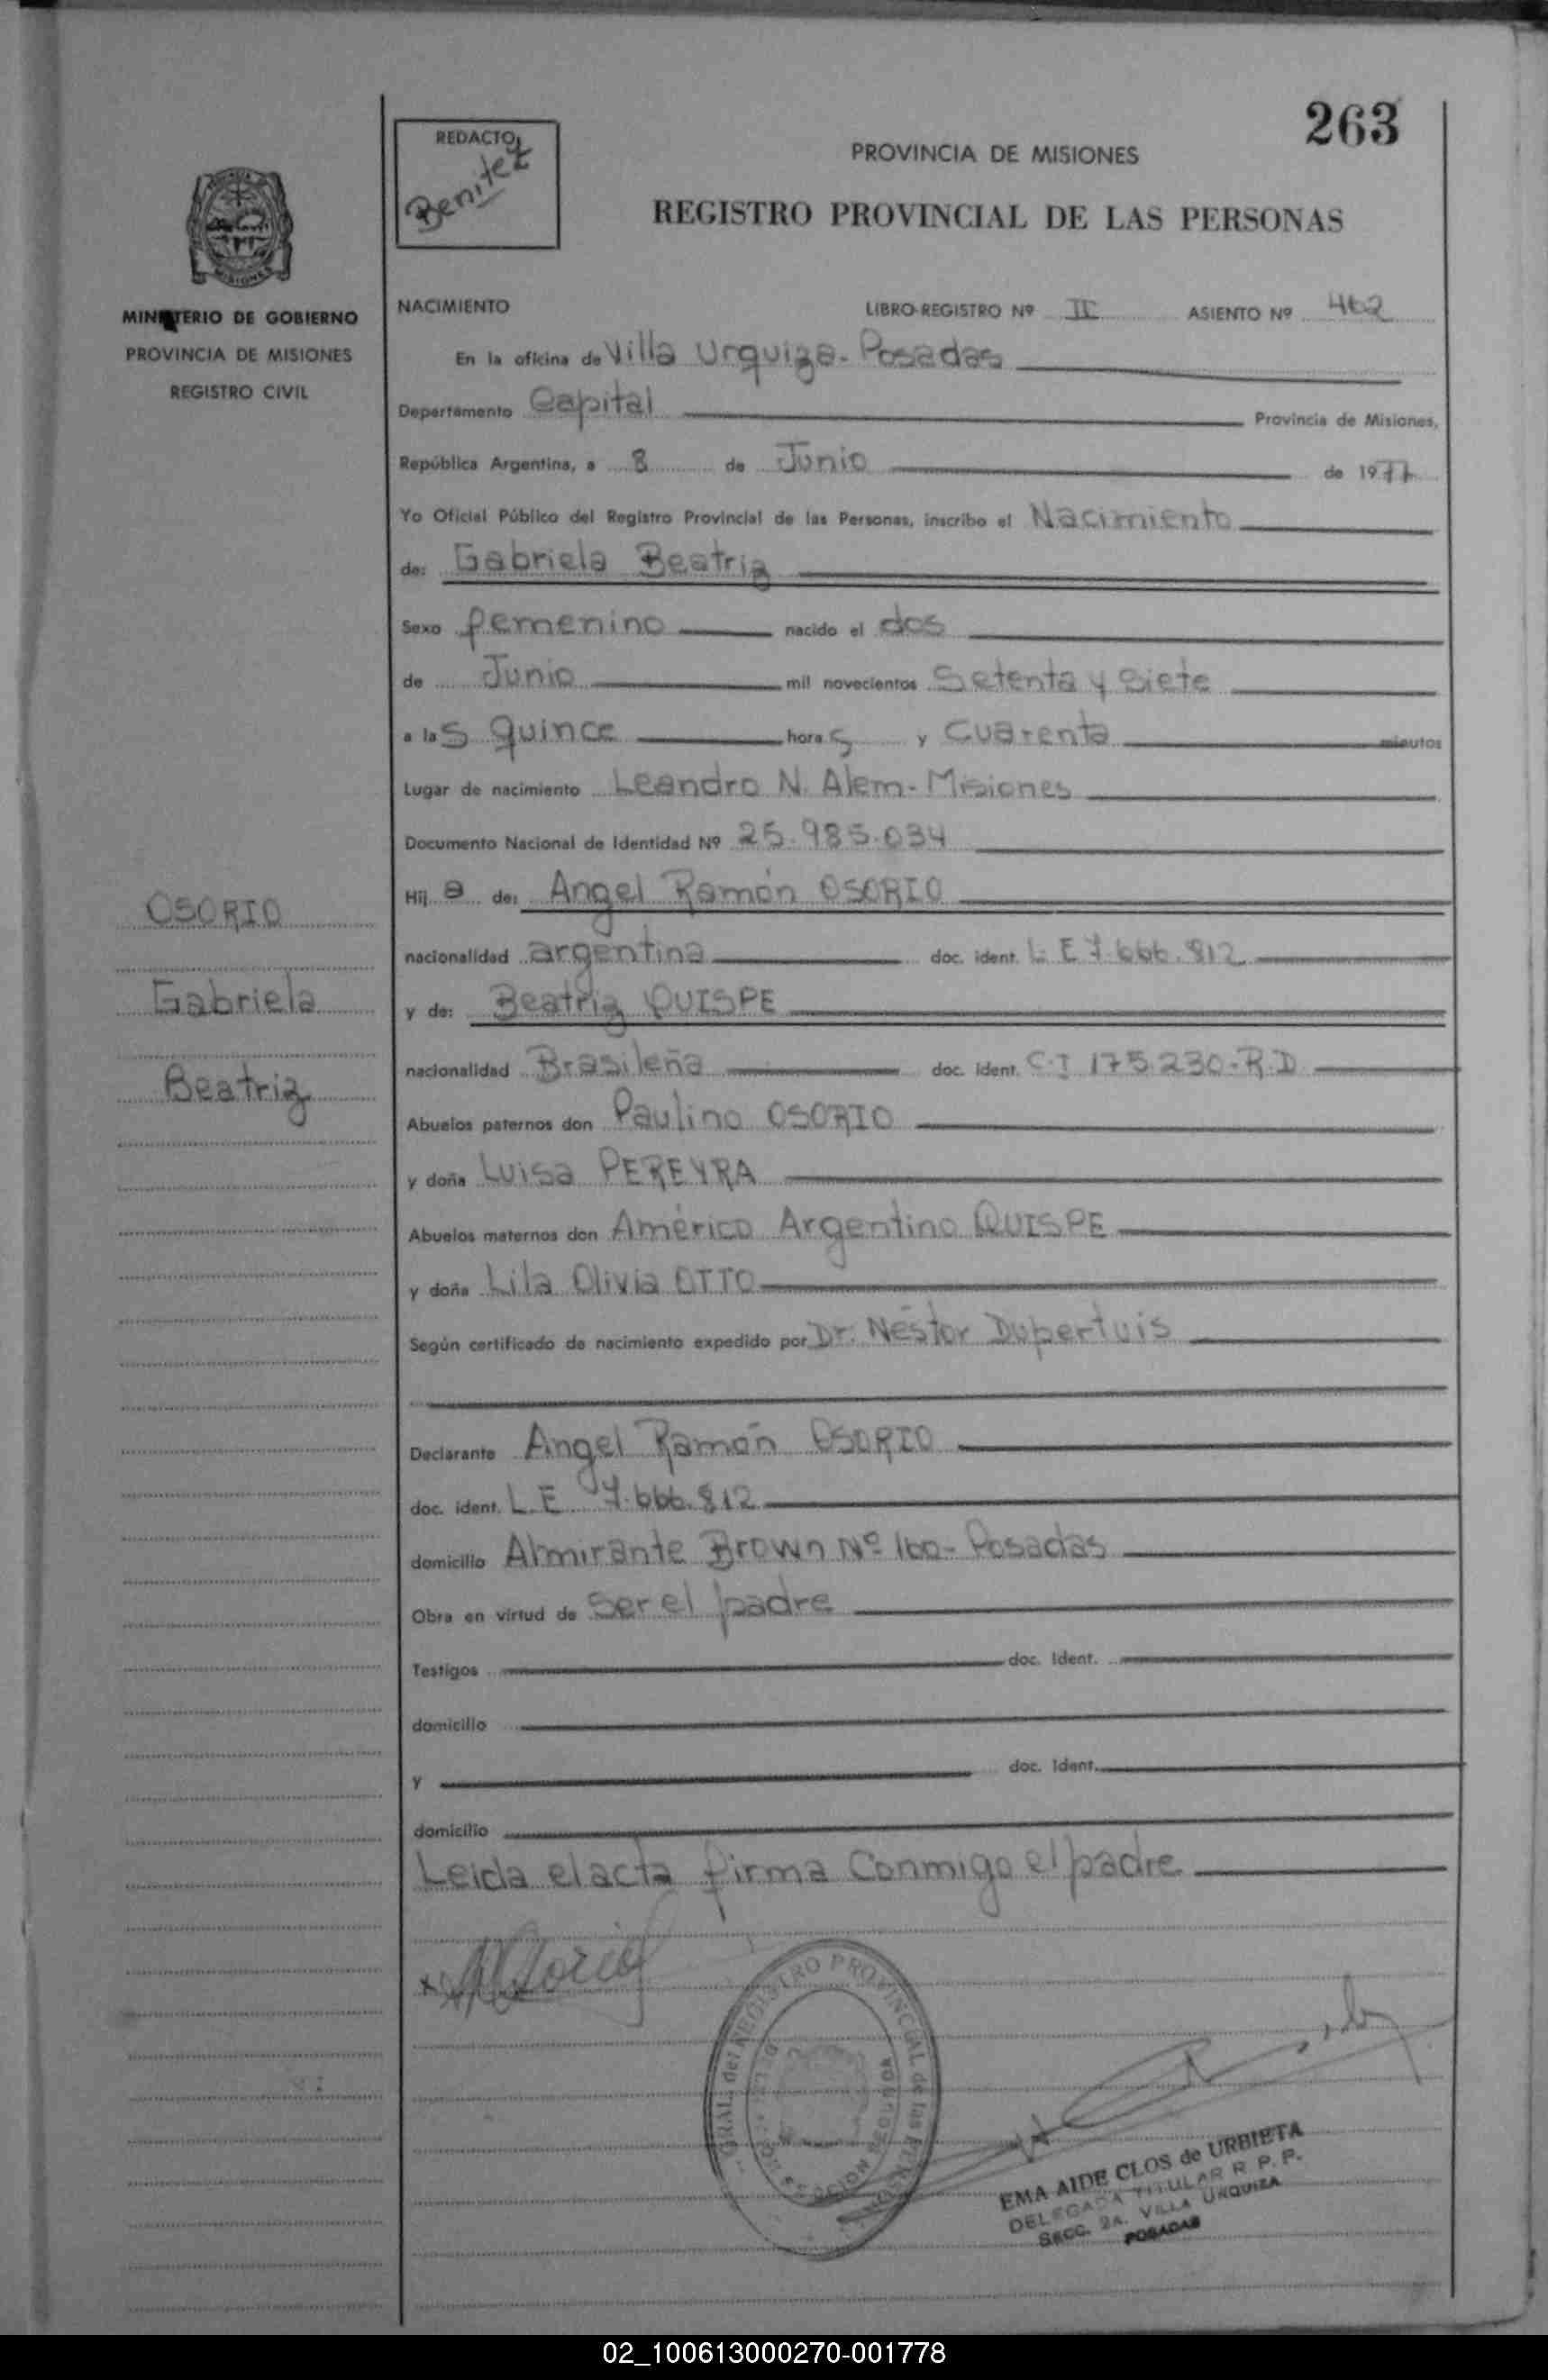 263
REDACTO
Benitez
PROVINCIA DE MISIONES
REGISTRO PROVINCIAL DE LAS PERSONAS
MISIONES
MINISTERIO DE GOBIERNO
PROVINCIA DE MISIONES
REGISTRO CIVIL
NACIMIENTO LIBRO-REGISTRO Nº II ASIENTO Nº 462
En la oficina de Villa Urquiza - Posadas
Departamento Capital Provincia de Misiones,
República Argentina, a 8 de Junio de 1977
Yo Oficial Público del Registro Provincial de las Personas, inscribo el Nacimiento
de: Gabriela Beatriz
Sexo femenino nacido el dos
de Junio mil novecientos Setenta y Siete
a las quince horas y Cuarenta minutos
Lugar de nacimiento Leandro N. Alem - Misiones
Documento Nacional de Identidad Nº 25.985.034
Hija de: Angel Ramón OSORIO
nacionalidad argentina doc. ident. L.E 7.666.812
y de: Beatriz QUISPE
nacionalidad Brasileña doc. ident. C.I 175.230-R.D
Abuelos paternos don Paulino OSORIO
y doña Luisa PEREYRA
Abuelos maternos don Américo Argentino QUISPE
y doña Lila Olivia OTTO
Según certificado de nacimiento expedido por Dr. Néstor Dupertuis
Declarante Angel Ramón OSORIO
doc. ident. L.E 7.666.812
domicilio Almirante Brown Nº 160 - Posadas
Obra en virtud de Ser el padre
Testigos doc. Ident.
domicilio
y doc. Ident.
domicilio
Leida el acta firma Conmigo el padre
OSORIO
Gabriela
Beatriz
GRAL. del REGISTRO PROVINCIAL de las
EMA AIDE CLOS de URBIETA
DELEGADA TITULAR R. P. P.
SECC. 2A. VILLA URQUIZA
POSADAS
02_100613000270-001778